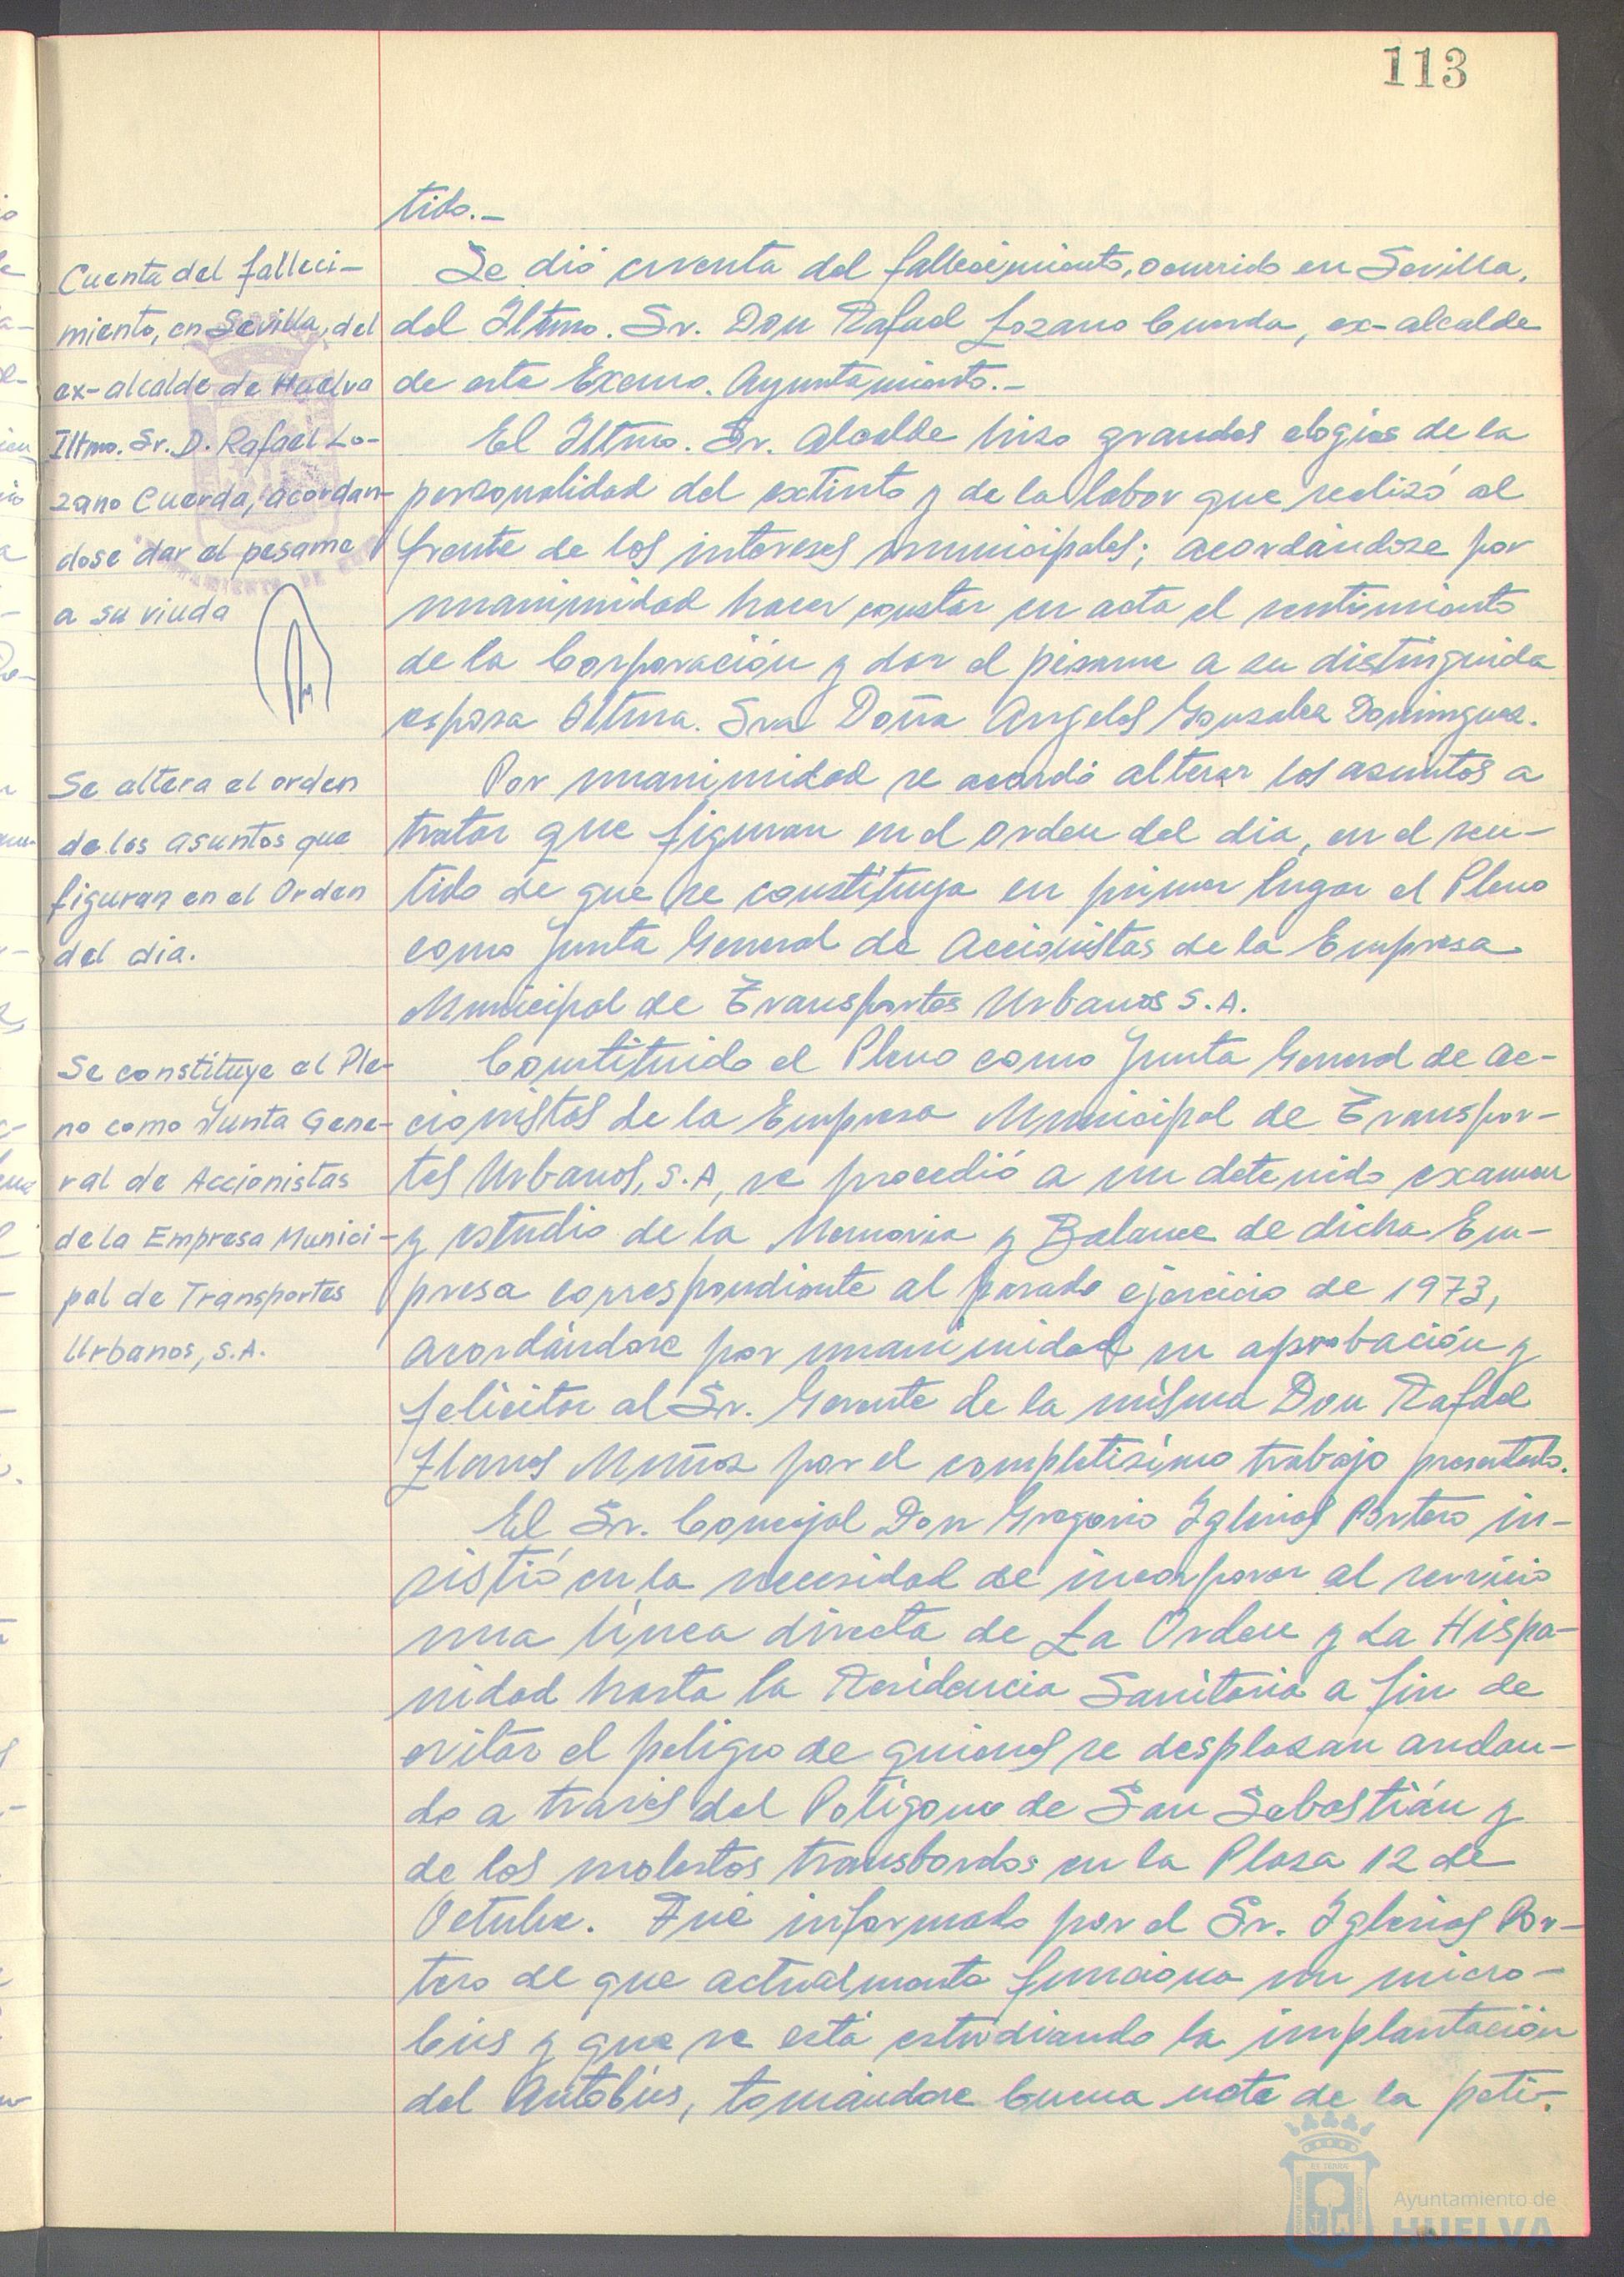 113
tido.-
Cuenta del falleci-
miento, en Sevilla, del
ex-alcalde de Huelva
Iltmo. Sr. D. Rafael Lo-
zano Cuerda, acordan-
dose dar el pesame
a su viuda
Se dió cuenta del fallecimiento, ocurrido en Sevilla,
del Iltmo. Sr. Don Rafael Lozano Cuerda, ex-alcalde
de este Excmo. Ayuntamiento.-
El Iltmo. Sr. Alcalde hizo grandes elogios de la
personalidad del extinto y de la labor que realizó al
frente de los intereses municipales; acordándose por
unanimidad hacer constar en acta el sentimiento
de la Corporación y dar el pésame a su distinguida
esposa Iltma. Sra Doña Angeles Gonzalez Dominguez.
Se altera el orden
de los asuntos que
figuran en el Orden
del dia.
Por unanimidad se acordó alterar los asuntos a
tratar que figuran en el orden del dia, en el sen-
tido de que se constituya en primer lugar el Pleno
como Junta General de Accionistas de la Empresa
Municipal de Transportes Urbanos S.A.
Se constituye el Ple-
no como Junta Gene-
ral de Accionistas
de la Empresa Munici-
pal de Transportes
Urbanos, S.A.
Constituido el Pleno como Junta General de Ac-
cionistas de la Empresa Municipal de Transpor-
tes Urbanos, S.A, se procedió a un detenido examen
y estudio de la Memoria y Balance de dicha Em-
presa correspondiente al pasado ejercicio de 1973,
acordándose por unanimidad su aprobación y
felicitar al Sr. Gerente de la misma Don Rafael
Llanes Muñoz por el completisimo trabajo presentado.
El Sr. Concejal Don Gregorio Iglesias Portero in-
sistió en la necesidad de incorporar al servicio
una línea directa de La Orden y La Hispa-
nidad hasta la Residencia Sanitaria a fin de
evitar el peligro de quienes se desplazan andan-
do a través del Poligono de San Sebastián y
de los molestos transbordos en la Plaza 12 de
Octubre. Fué informado por el Sr. Iglesias Por-
tero de que actualmente funciona un micro-
bús y que se está estudiando la implantación
del Autobús, tomándose buena nota de la peti-
Ayuntamiento de
HUELVA